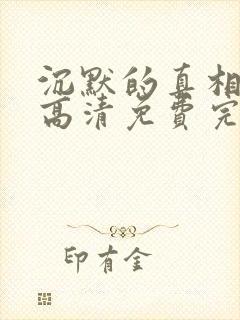 沉默的真相
高清免费完
印有金